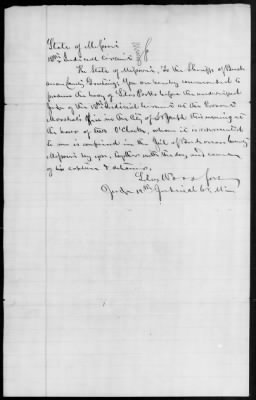 State of Missouri
12th Judicial Circuit
The State of Missouri, To the Sheriff of Buch
anan County Greeting: You are hereby commanded to
produce the body of before the undersigned
Judge of the 12th Judicial Circuit at the Provost
Marshal's office in the City of St Joseph this morning at
the hour of O'Clock, whom it is represented
to me is confined in the Jail of Buchanan County
Missouri by you, together with the day and cause
of his capture & detention.
Silas Woodson
Judge 12th Judicial Ct. Mo